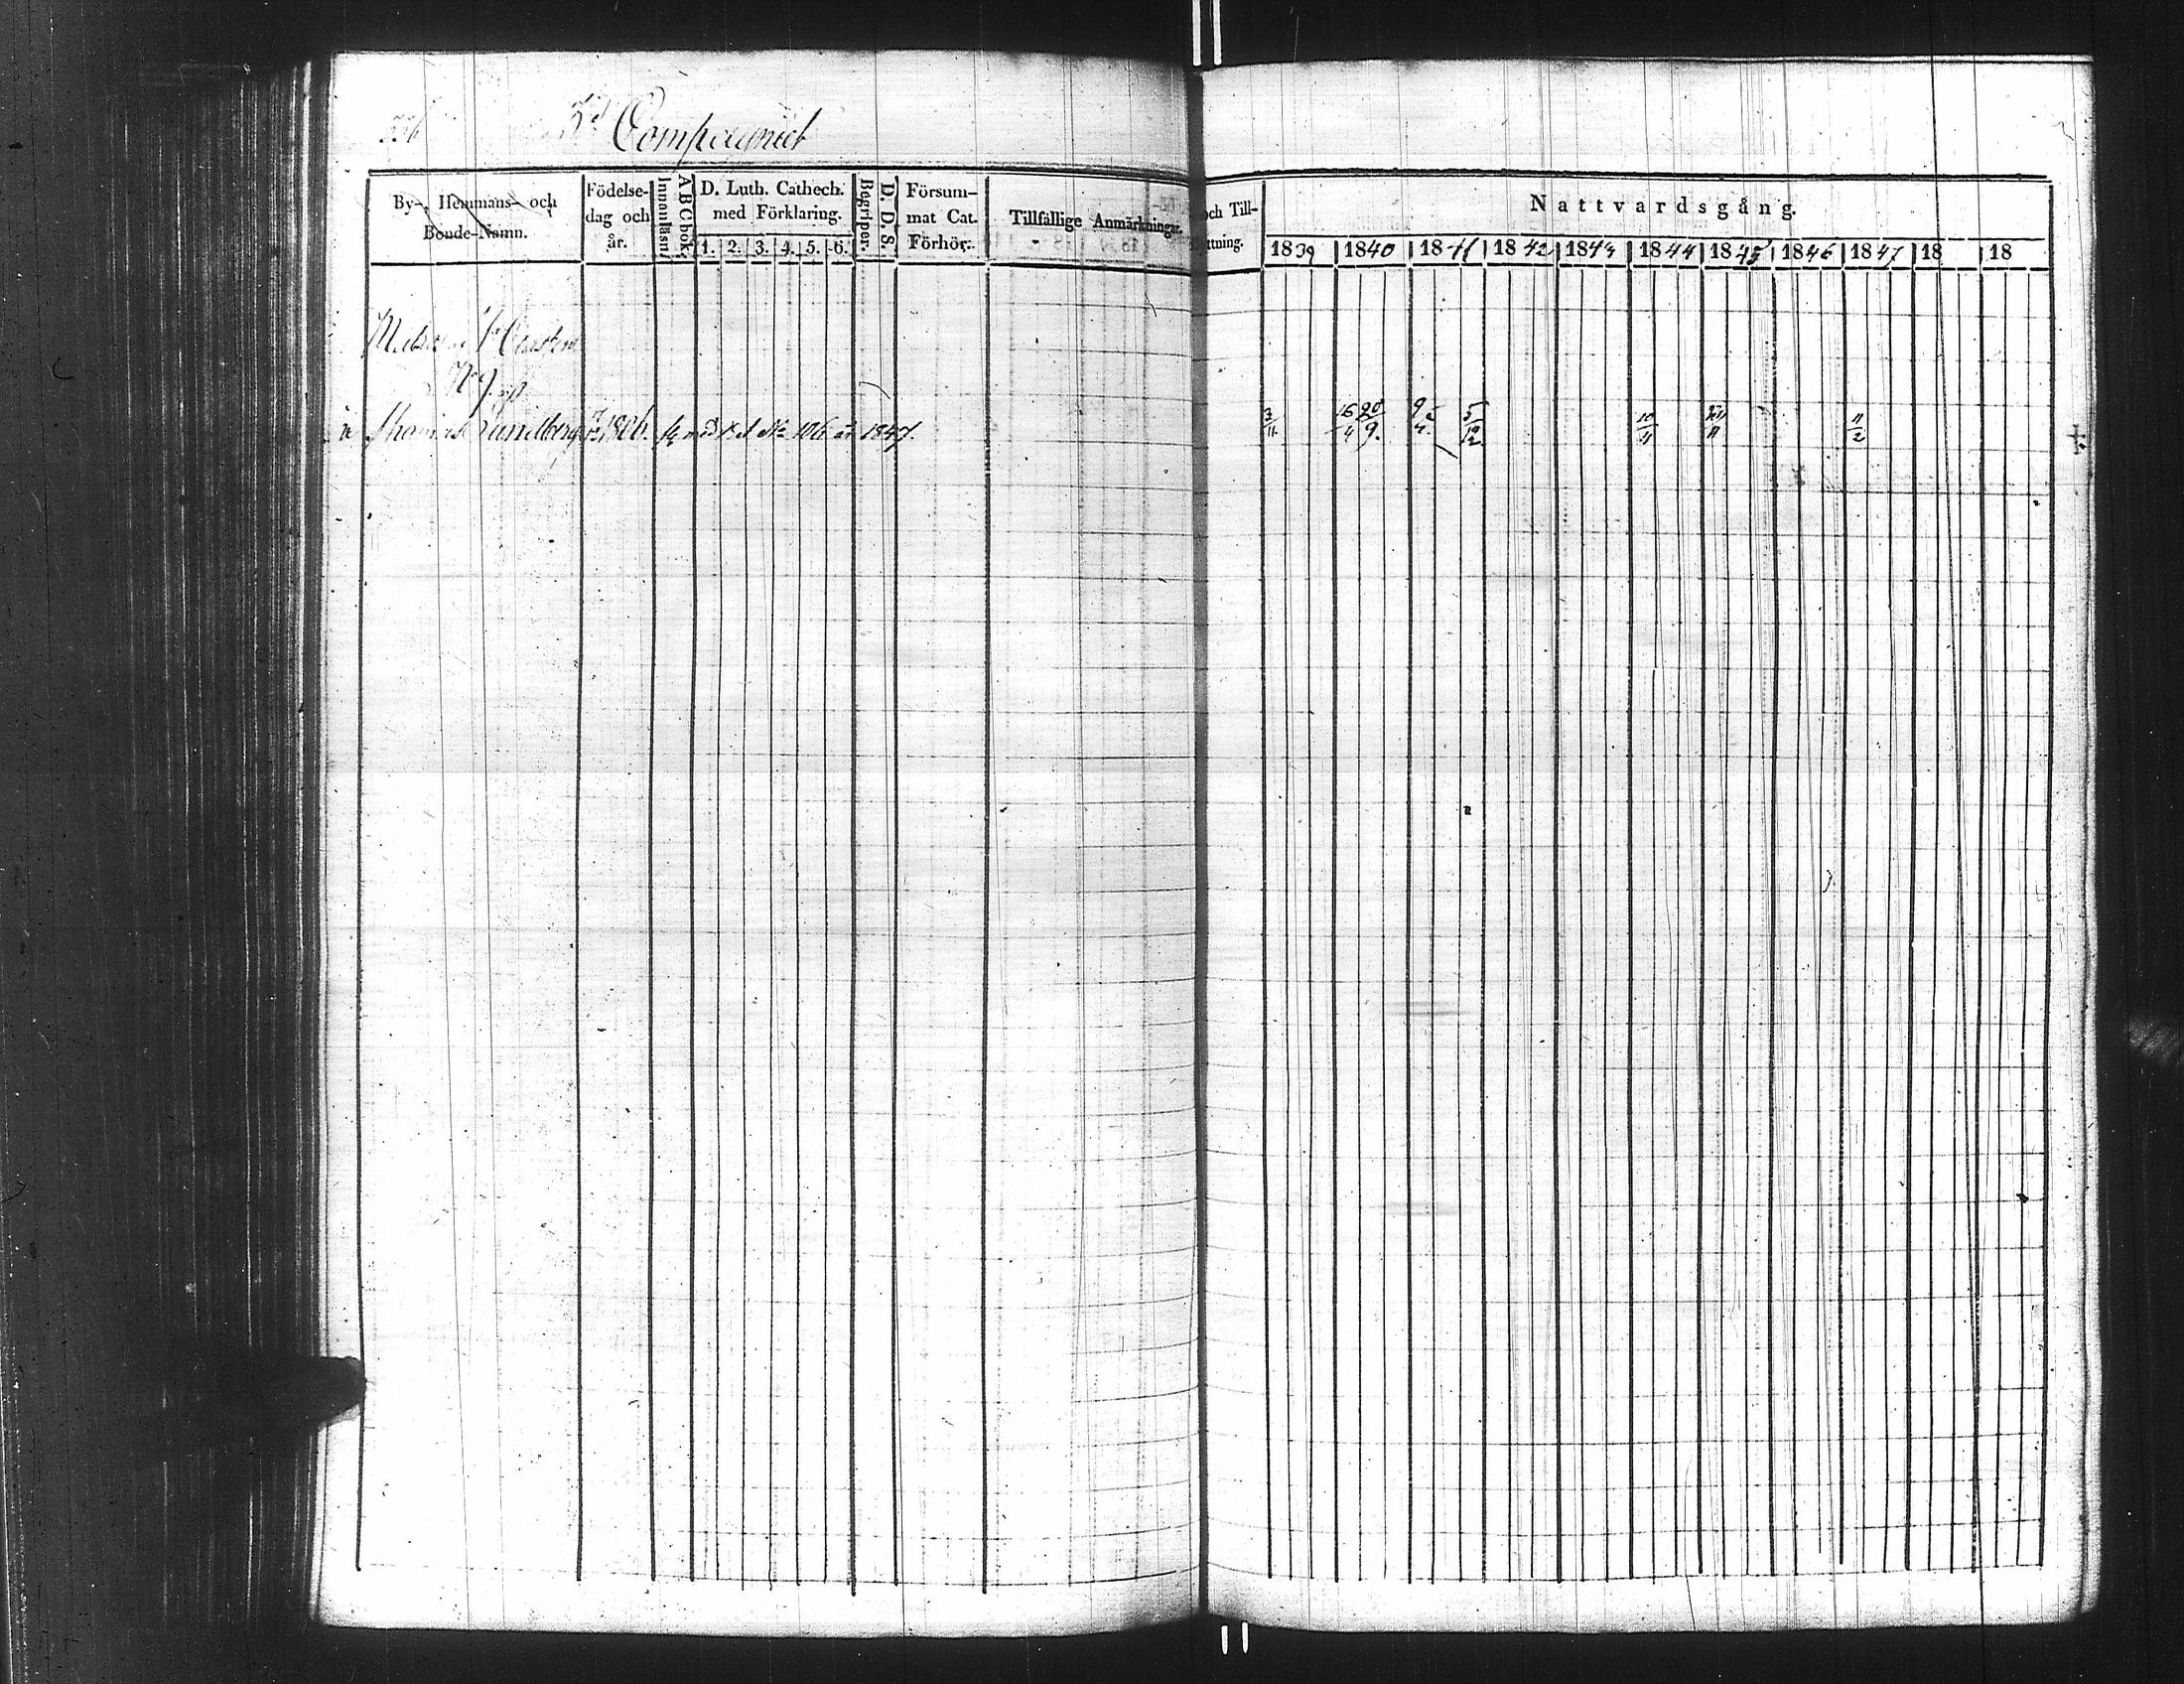 336 3d Compagniet
By-, Hemmans- och Bonde-Namn.
Födelse- dag och år.
Innanläsn.
A B C bok.
D. Luth. Cathech. med Förklaring.
1. 2. 3. 4. 5. 6.
Begriper.
D. D. S.
Försum- mat Cat. Förhör.
Tillfällige Anmärkningar.
och Till-
Nattvardsgång.
1839 1840 1841 1842 1843 1844 1845 1846 1847 18 18
N:o 9.
Thomas Sundberg 1806. med No 106 år 1847.
3/11 20/9 5/12 10/11 11/2